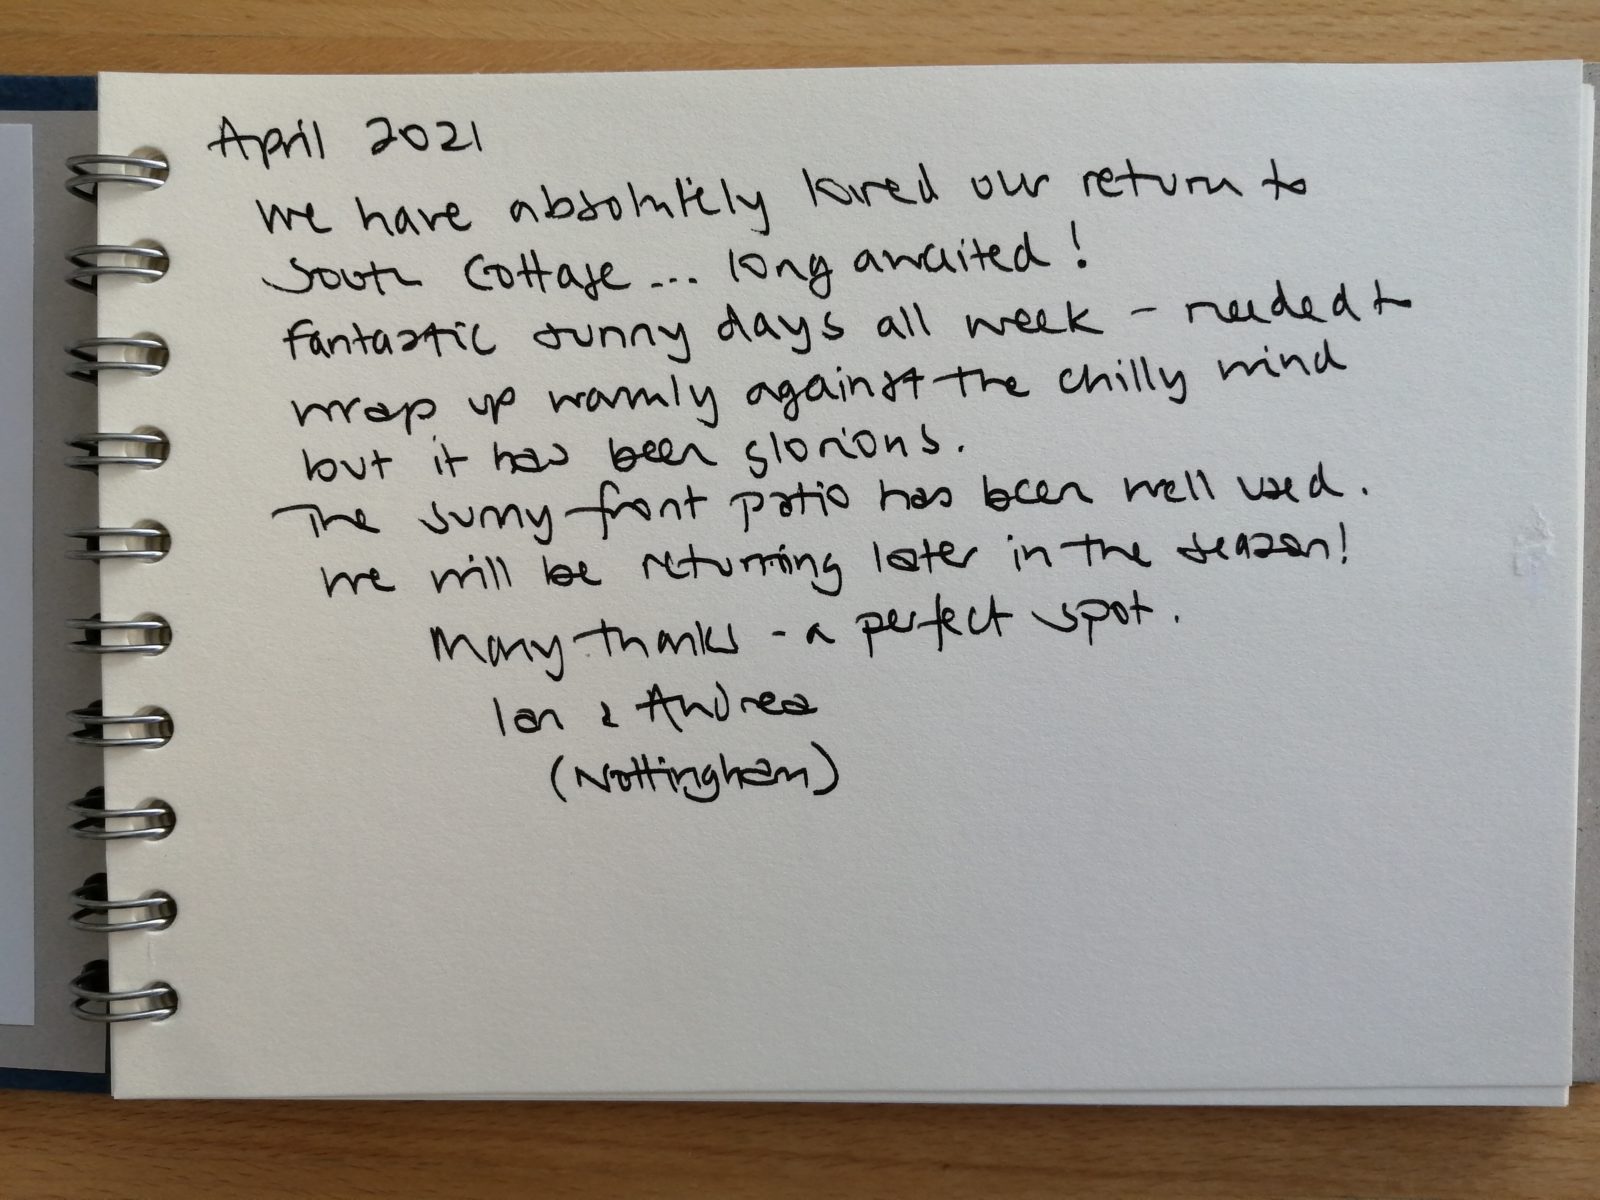 April 2021
We have absolutely loved our return to
South Cottage... long awaited!
Fantastic sunny days all week - needed to
wrap up warmly against the chilly wind
but it has been glorious.
The sunny front patio has been well used.
We will be returning later in the season!
Many thanks - a perfect spot.
Ian & Andrea
(Nottingham)